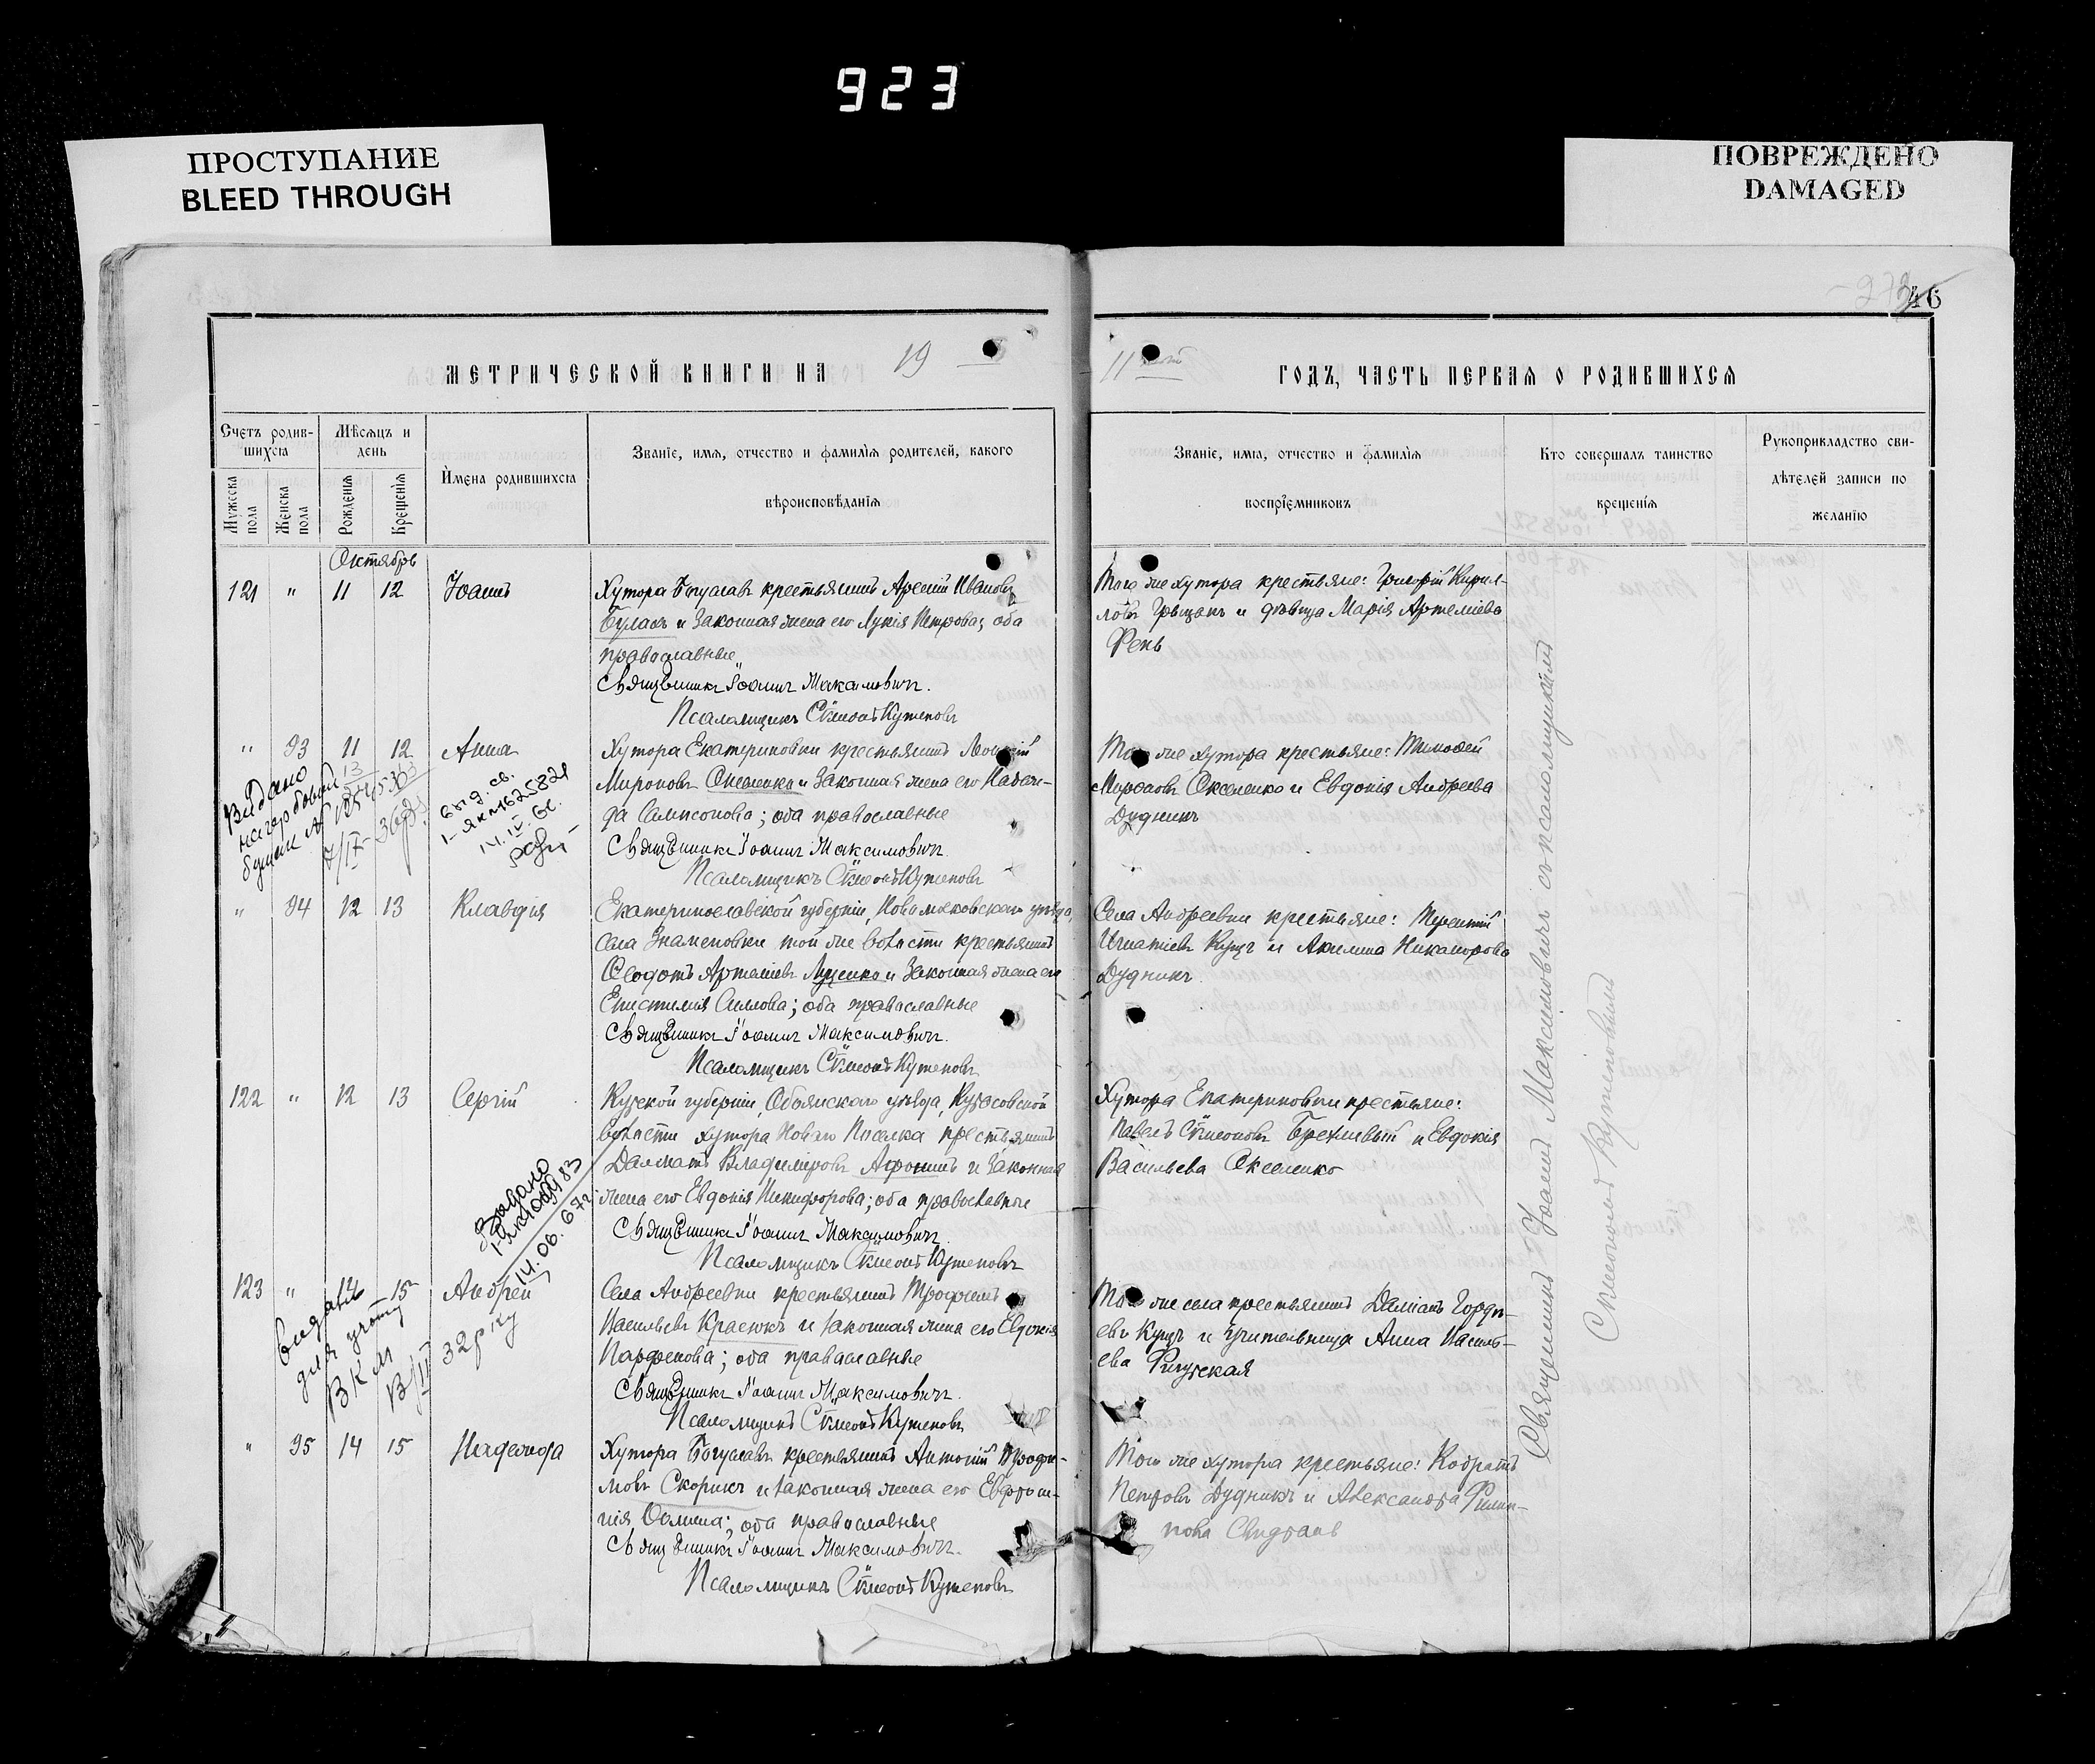 923
ПРОСТУПАНИЕ
BLEED THROUGH
ПОВРЕЖДЕНО
DAMAGED
46
МЕТРИЧЕСКОЙ КНИГИ НА 19
11 ГОДЪ, ЧАСТЬ ПЕРВАЯ О РОДИВШИХСЯ
Счетъ родив-
шихся
Мужеска пола
Женска пола
Мѣсяцъ и
день
Рожденія
Крещенія
Имена родившихся
Званіе, имя, отчество и фамилія родителей, какого
вѣроисповѣданія
Званіе, имя, отчество и фамилія
воспріемниковъ
Кто совершалъ таинство
крещенія
Рукоприкладство сви-
дѣтелей записи по
желанію
Октябрь
121 " 11 12 Іоаннъ
Хутора Богуславъ крестьянинъ Арсеній Ивановъ
Булахъ и законная жена его Лукія Петрова; оба
православные
Священникъ Іоаннъ Максимовичъ.
Псаломщикъ Сѷмеонъ Кутеповъ
Того же хутора крестьяне: Григорій Кирил-
ловъ Грыцанъ и дѣвица Марія Артеміева
Фень
" 93 11 12 Анна
Хутора Екатериновки крестьянинъ
Мироновъ Оксененко и законная жена его Надеж-
да Сампсонова; оба православные
Священникъ Іоаннъ Максимовичъ
Псаломщикъ Сѷмеонъ Кутеповъ
Того же хутора крестьяне: Тимофей
Мироновъ Оксененко и Евдокія Андреева
Дудникъ
Видано
выд. св.
14.IV.
" 94 12 13 Клавдія
Екатеринославской губерніи, Новомосковскаго уѣзда,
села Знаменовки той же волости крестьянинъ
Ѳеодотъ Артеміевъ Луценко и законная жена его
Епистимія; оба православные
Священникъ Іоаннъ Максимовичъ.
Псаломщикъ Сѷмеонъ Кутеповъ
Села Андреевки крестьяне: Терентій
Игнатіевъ Куцъ и Акилина Никанорова
Дудникъ
122 " 12 13 Сергій
Курской губерніи, Обоянскаго уѣзда,
волости хутора Новаго Поселка крестьянинъ
Далматъ Владиміровъ Афонинъ и законная
жена его Евдокія Никифорова; оба православные
Священникъ Іоаннъ Максимовичъ
Псаломщикъ Сѷмеонъ Кутеповъ
Хутора Екатериновки крестьяне:
Павелъ Сѷмеоновъ и Евдокія
Васильева Оксененко
14.06.67г
123 " 15 Андрей
Села Андреевки крестьянинъ Трофимъ
Васильевъ Краснюкъ и законная жена его Евдокія
Парфенова; оба православные
Священникъ Іоаннъ Максимовичъ.
Псаломщикъ Сѷмеонъ Кутеповъ
Того же села крестьянинъ Даміанъ Горди-
евъ Куцъ и учительница Анна Василь-
ева
видана
для учоту
" 95 14 15 Надежда
Хутора Богуславъ крестьянинъ Антоній Трофи-
мовъ Скорикъ и законная жена его Евфроси-
нія; оба православные
Священникъ Іоаннъ Максимовичъ.
Псаломщикъ Сѷмеонъ Кутеповъ
Того же хутора крестьяне: Кодратъ
Петровъ Дудникъ и Александра Филип-
пова
Священникъ Іоаннъ Максимовичъ съ псаломщикомъ
Сѷмеономъ Кутеповымъ